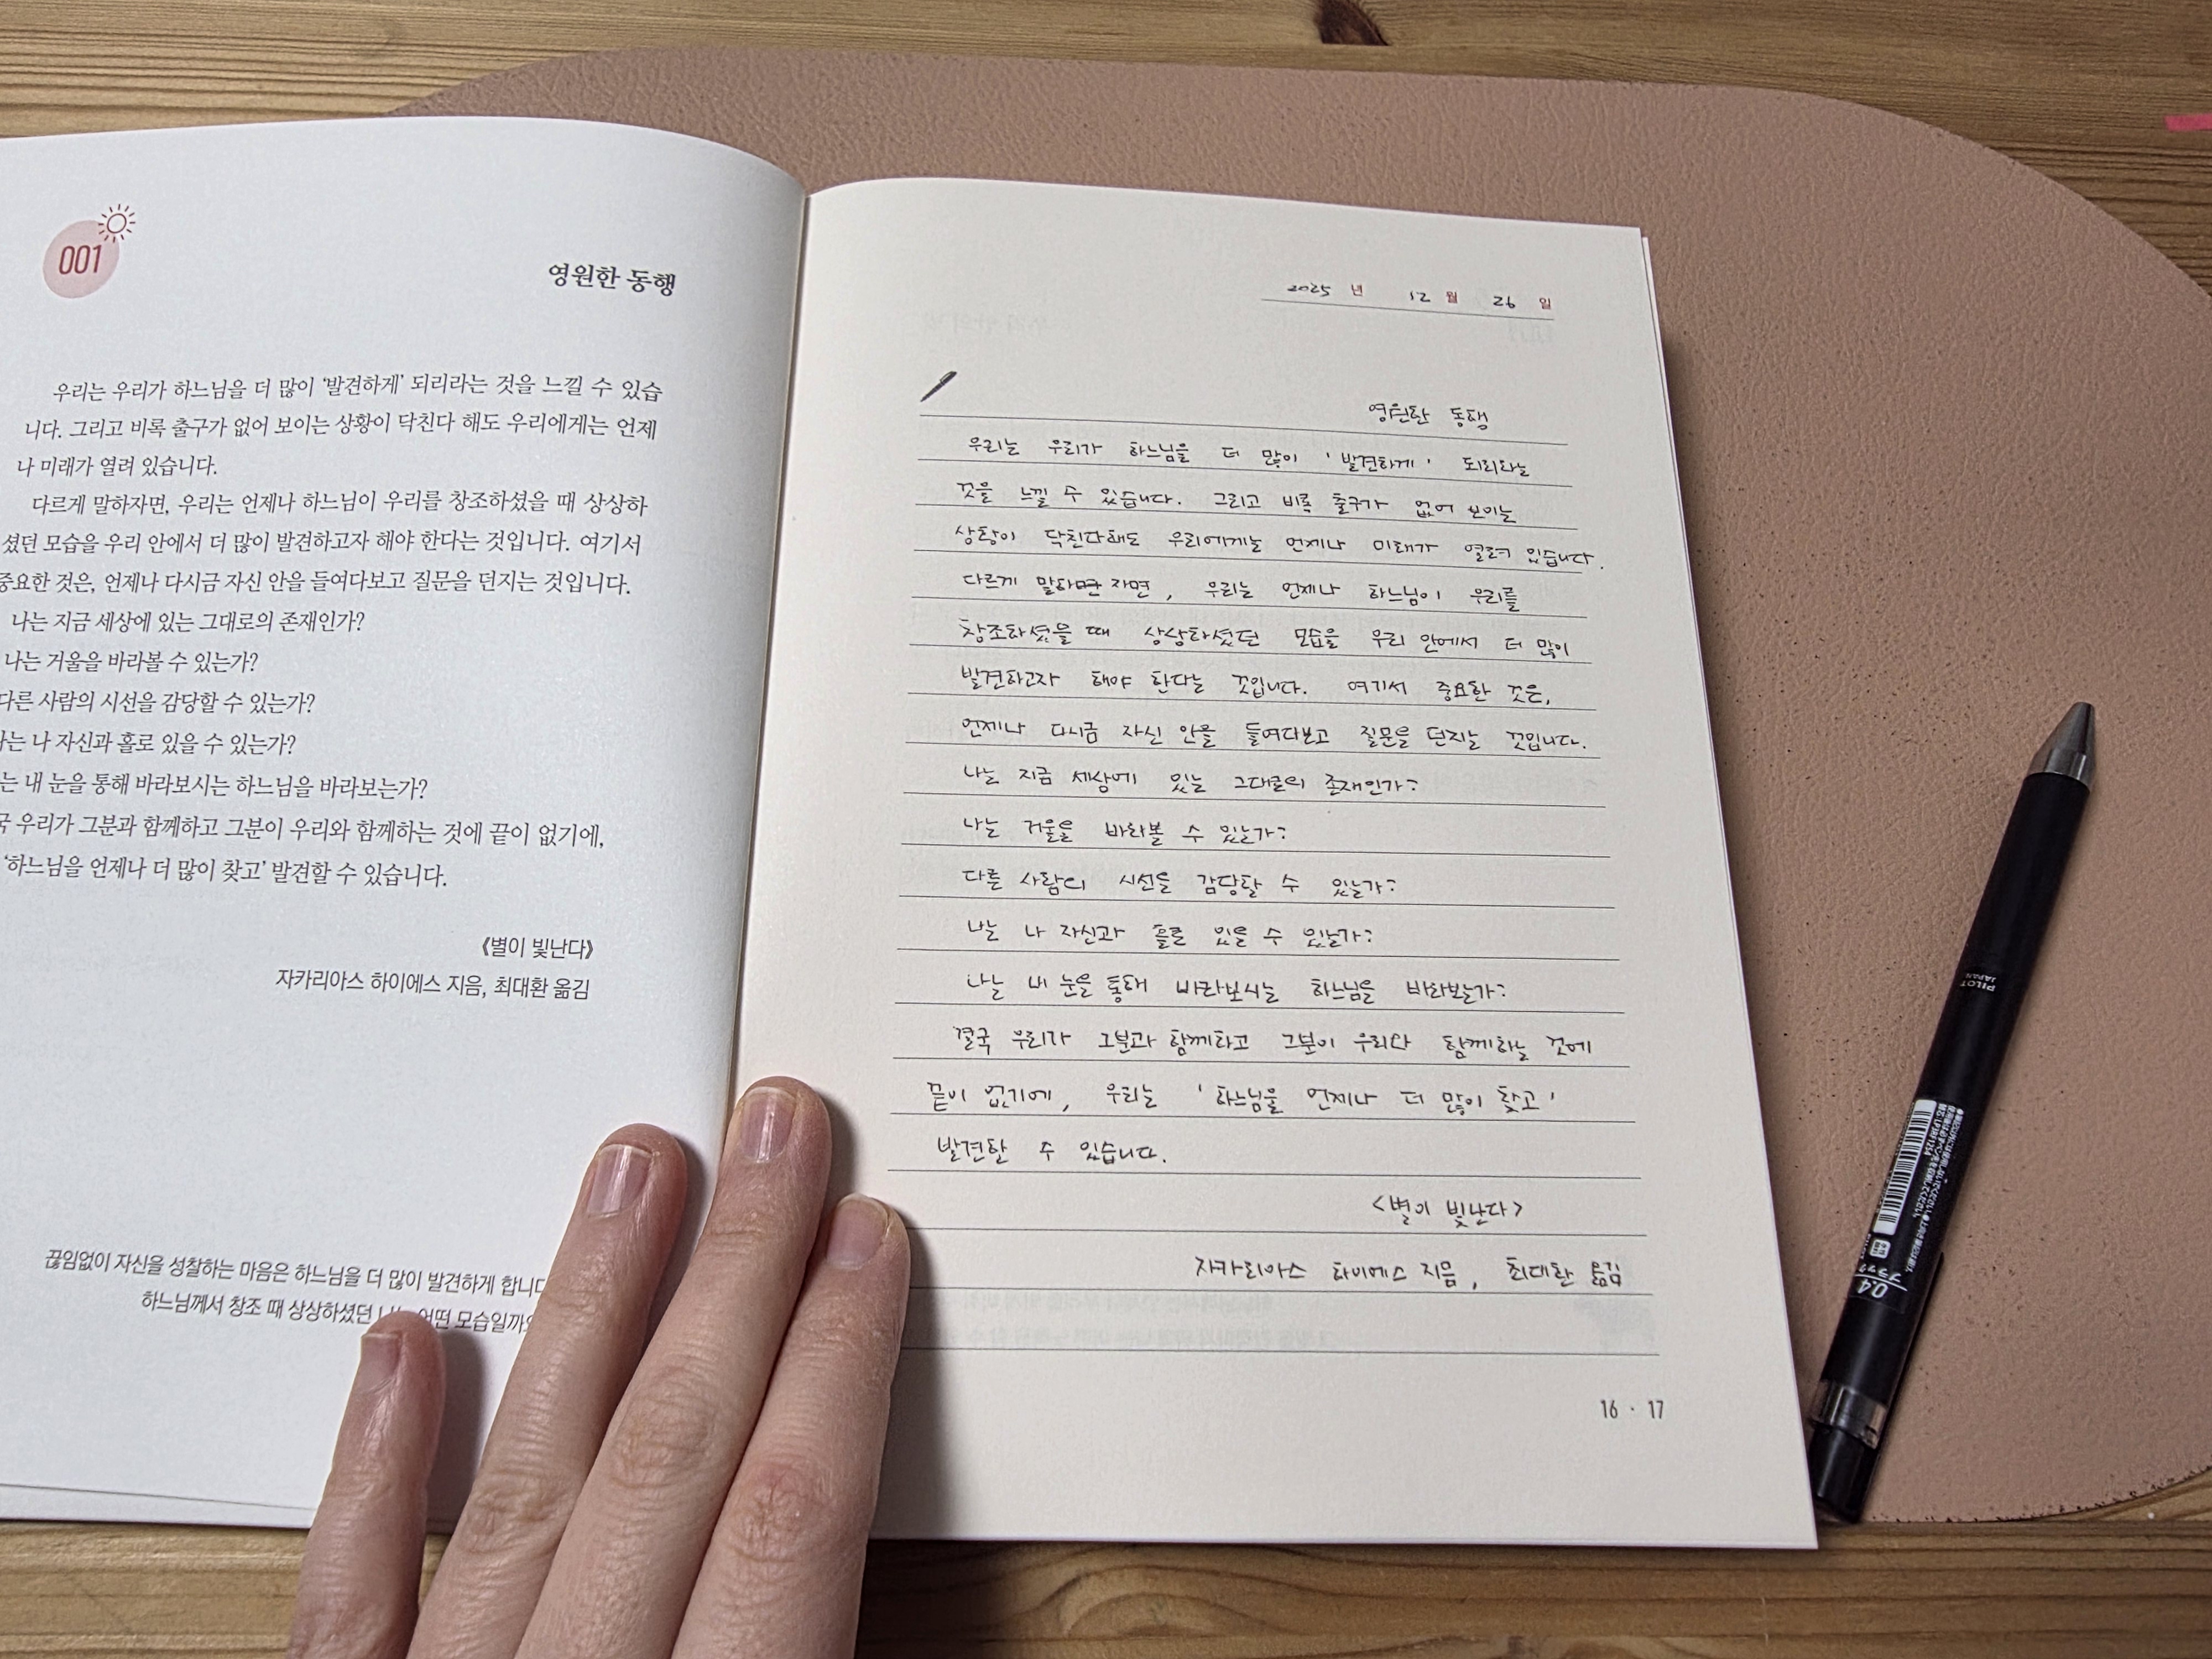 001
영원한 동행
우리는 우리가 하느님을 더 많이 '발견하게' 되리라는 것을 느낄 수 있습
니다. 그리고 비록 출구가 없어 보이는 상황이 닥친다 해도 우리에게는 언제
나 미래가 열려 있습니다.
다르게 말하자면, 우리는 언제나 하느님이 우리를 창조하셨을 때 상상하
셨던 모습을 우리 안에서 더 많이 발견하고자 해야 한다는 것입니다. 여기서
중요한 것은, 언제나 다시금 자신 안을 들여다보고 질문을 던지는 것입니다.
나는 지금 세상에 있는 그대로의 존재인가?
나는 거울을 바라볼 수 있는가?
다른 사람의 시선을 감당할 수 있는가?
나는 나 자신과 홀로 있을 수 있는가?
는 내 눈을 통해 바라보시는 하느님을 바라보는가?
국 우리가 그분과 함께하고 그분이 우리와 함께하는 것에 끝이 없기에,
'하느님을 언제나 더 많이 찾고' 발견할 수 있습니다.
《별이 빛난다》
자카리아스 하이에스 지음, 최대환 옮김
끊임없이 자신을 성찰하는 마음은 하느님을 더 많이 발견하게 합니다
하느님께서 창조 때 상상하셨던 어떤 모습일까요
2025 년 12 월 26 일
영원한 동행
우리는 우리가 하느님을 더 많이 '발견하게' 되리라는
것을 느낄 수 있습니다. 그리고 비록 출구가 없어 보이는
상황이 닥친다해도 우리에게는 언제나 미래가 열려 있습니다.
다르게 말하면 자면, 우리는 언제나 하느님이 우리를
창조하셨을 때 상상하셨던 모습을 우리 안에서 더 많이
발견하고자 해야 한다는 것입니다. 여기서 중요한 것은,
언제나 다시금 자신 안을 들여다보고 질문을 던지는 것입니다.
나는 지금 세상에 있는 그대로의 존재인가?
나는 거울을 바라볼 수 있는가?
다른 사람의 시선을 감당할 수 있는가?
나는 나 자신과 홀로 있을 수 있는가?
나는 내 눈을 통해 바라보시는 하느님을 바라보는가?
결국 우리가 그분과 함께하고 그분이 우리와 함께하는 것에
끝이 없기에, 우리는 '하느님을 언제나 더 많이 찾고'
발견할 수 있습니다.
<별이 빛난다>
자카리아스 하이에스 지음, 최대환 옮김
16 · 17
PILOT
JAPAN
0.4